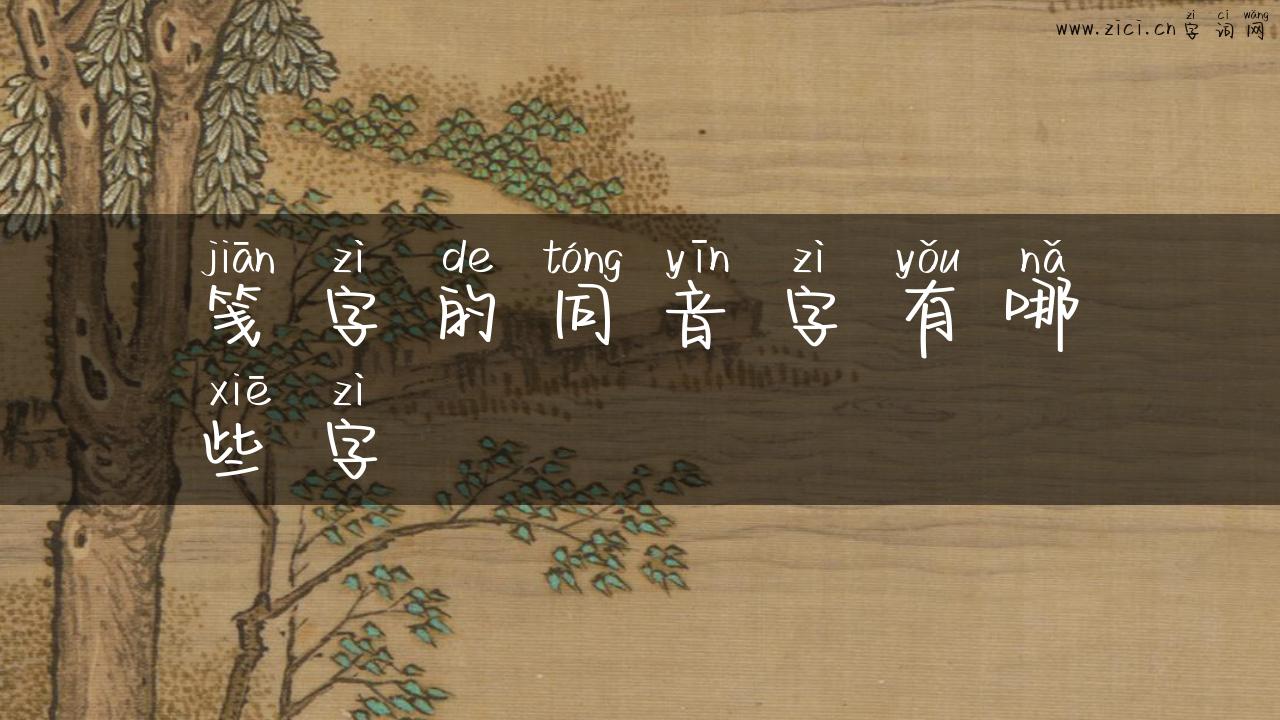 zì cí wǎng
www.zici.cn 字 词 网
jiān zì de tóng yīn zì yǒu nǎ
笺 字 的 同 音 字 有 哪
xiē zì
些 字